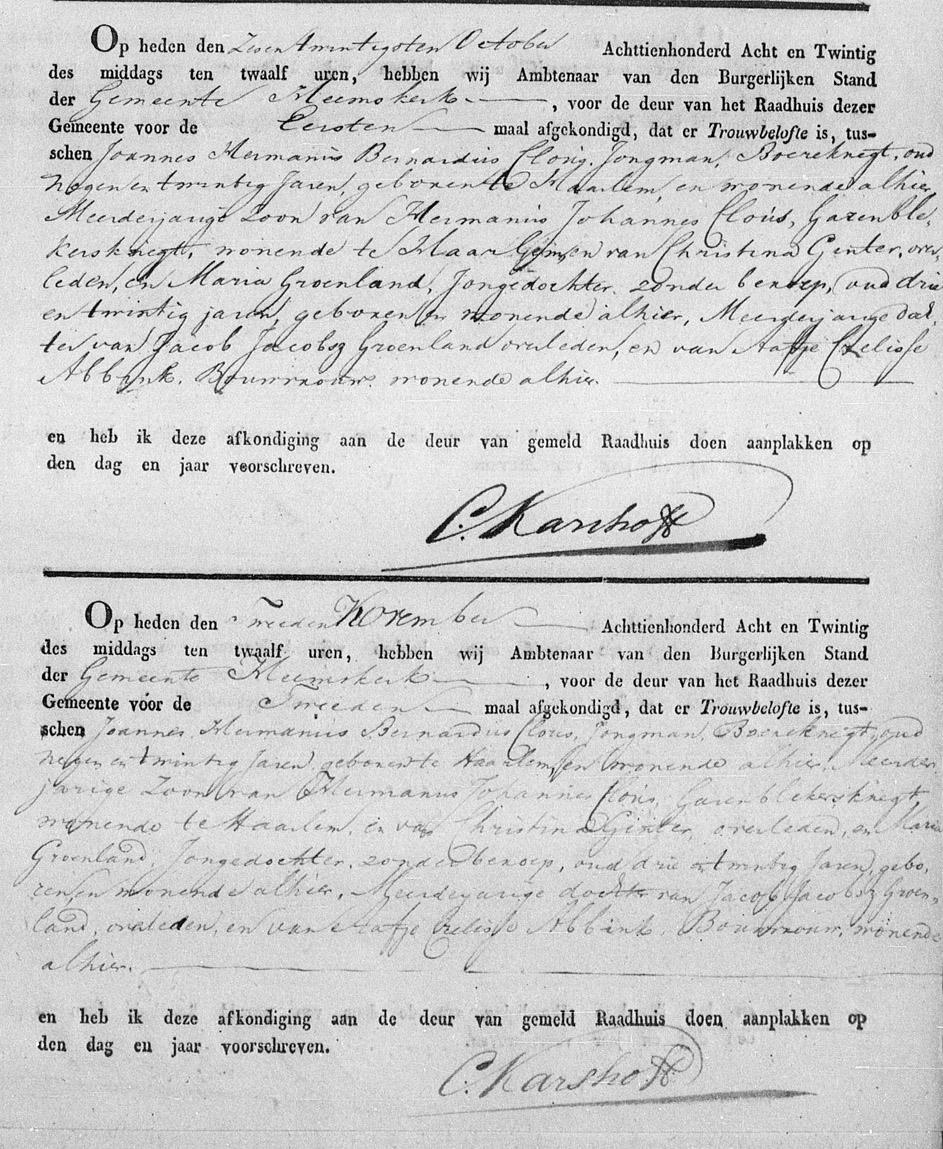 Op heden den Zeven Twintigsten October Achttienhonderd Acht en Twintig
des middags ten twaalf uren, hebben wij Ambtenaar van den Burgerlijken Stand
der Gemeente Heemskerk, voor de deur van het Raadhuis dezer
Gemeente voor de Eersten maal afgekondigd, dat er Trouwbelofte is, tus-
schen Joannes Hermanus Bernardus Clous, Jongman, Boereknegt, oud
negen en twintig Jaren, geboren te Haarlem, en wonende alhier,
Meerderjarige Zoon van Hermanus Johannes Clous, Garenble-
kersknegt, wonende te Haarlem, en van Christina Ginter, over-
leden, en Maria Groenland, Jongedochter, zonder beroep, oud drie
en twintig jaren, geboren en wonende alhier, Meerderjarige doch-
ter van Jacob Jacobsz Groenland overleden, en van Aafje
Abbink, Bouwvrouw, wonende alhier.
en heb ik deze afkondiging aan de deur van gemeld Raadhuis doen aanplakken op
den dag en jaar voorschreven.
C. Karshoff
Op heden den Tweeden November Achttienhonderd Acht en Twintig
des middags ten twaalf uren, hebben wij Ambtenaar van den Burgerlijken Stand
der Gemeente Heemskerk, voor de deur van het Raadhuis dezer
Gemeente voor de Tweeden maal afgekondigd, dat er Trouwbelofte is, tus-
schen Joannes Hermanus Bernardus Clous, Jongman, Boereknegt, oud
negen en twintig Jaren, geboren te Haarlem, en wonende alhier, Meerder-
jarige Zoon van Hermanus Johannes Clous, Garenblekersknegt,
wonende te Haarlem, en van Christina Ginter, overleden, en Maria
Groenland, Jongedochter, zonder beroep, oud drie en twintig Jaren, gebo-
ren en wonende alhier, Meerderjarige dochter van Jacob Jacobsz Groen-
land, overleden, en van Aafje Abbink, Bouwvrouw, wonende
alhier.
en heb ik deze afkondiging aan de deur van gemeld Raadhuis doen aanplakken op
den dag en jaar voorschreven.
C. Karshoff